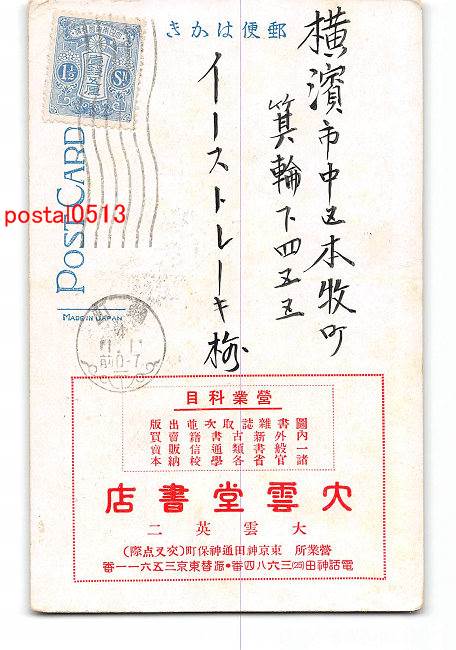 郵便はかき
1½ Sn
POST CARD
MADE IN JAPAN
postal0513
横濱市中区本牧町
箕輪下四五五
イーストレーキ
前0-7
營業科目
圖書雜誌取次並出版
內外新古書籍賣買
一般書類通信販賣
諸官省各學校納本
大雲堂書店
大雲英二
營業所 東京神田通神保町(交叉点際)
電話神田(25)三六八四番・振替東京三五六一一番